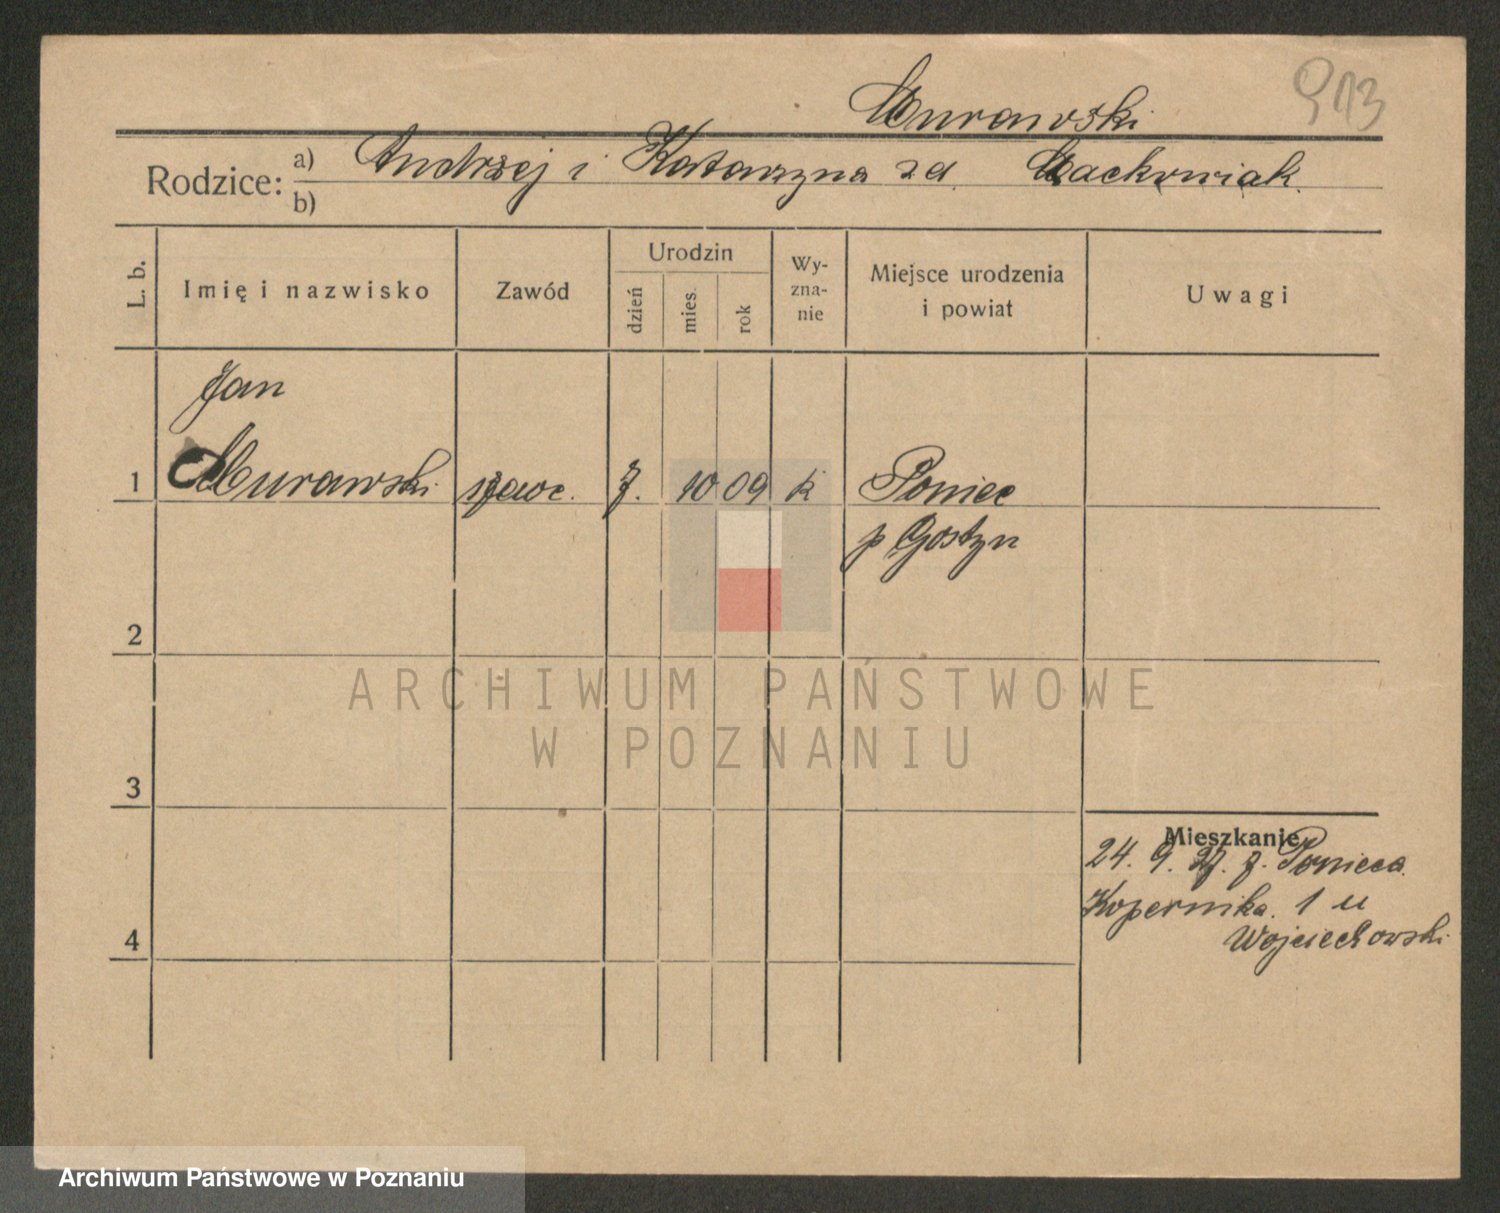 913
Murawski
Rodzice: a) Andrzej i Katarzyna zd. Maćkowiak.
b)
L. b. Imię i nazwisko Zawód Urodzin dzień mies. rok Wyznanie Miejsce urodzenia i powiat Uwagi
Jan
1 Murawski 7. 10 09 k Poniec
p Gostyn
2
ARCHIWUM PAŃSTWOWE
W POZNANIU
3
Mieszkanie
24. 9. 27. z. Ponieca.
4 Kopernika. 1 u
Wojciechowski.
Archiwum Państwowe w Poznaniu